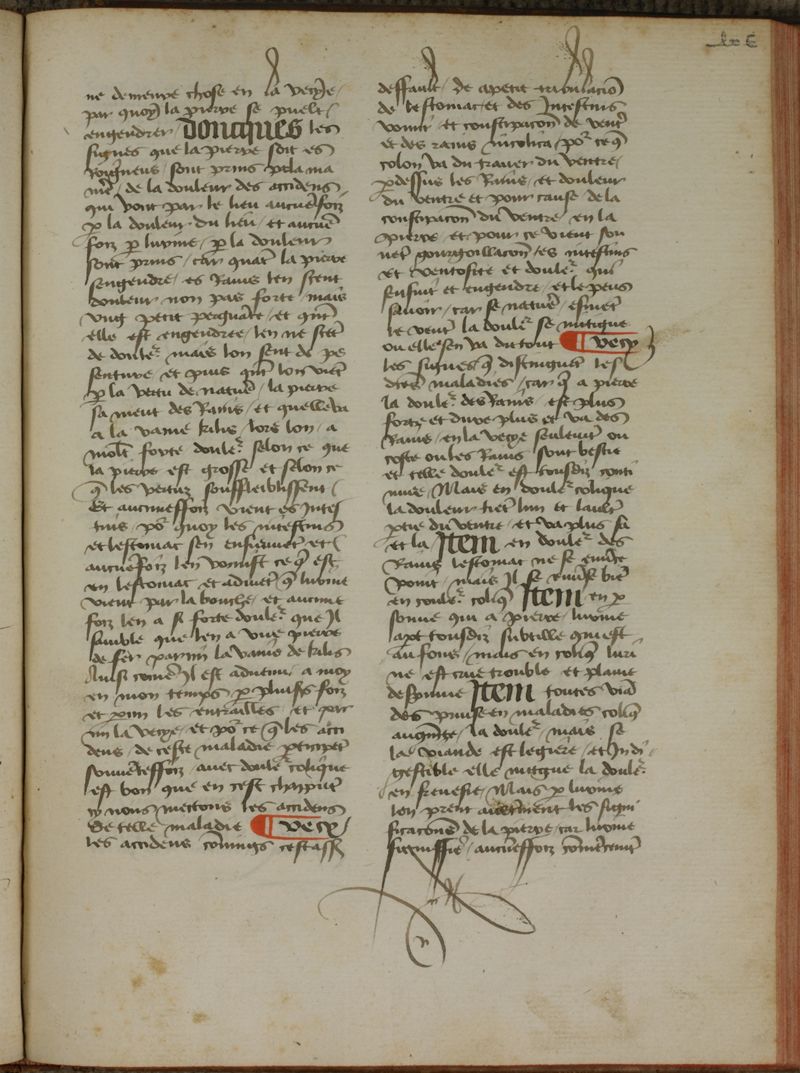 ne demeure chose en la vecye
par quoy la pierre se puelt
engendrer Doncques les
signes que la pierre soit es
roigneus sont prins p la ma
niē de la douleur des accidens
qui vont par le lieu aucuēs foiz
p la douleur du lieu et aucuē
foiz p lurine p la douleur
sont prins car quāt la pierre
sengendre es rains len sent
douleur non pas forte mais
vng petit pesante et qnt
elle est engendree len ne sēt
de doulr mais lon sent de pe
senture et puis qnt lon vient
p la vertu de natuē la pierre
sa ment des rains et quelle va
a la vanie kilis lors lon a
molt forte doulr selon ce que
la pierre est grosse et selon ce
q les vertuz souffleiblissent
Et aucuneffoiz vient es Intes
tins por quoy les intestins
et lestomac sen ensuiuēt et
aucuēfoiz len vomist ce q est
en lestomac et aduiēt q lurine
vient par la bouche et aucune
foiz len a si forte doulr que Il
samble que len a vne pierre
de fer parmi la vanie de kilis
Aussi comē Il est aduenu a moy
en mon temps p plusrs foiz
et pmi les entrailles et par
mi la vecye et por ce q les acci
dens de ceste maladie pticipēt
souuēteffoiz auec doulr colique
est bon que en cest chapitr
cy nous mettons les accidens
de telle maladie ¶ vecy
les accidens cōmuns cestassr
deffault de apetit tribulaciō
de lestomac et des Intestins
vomir et constipacon de ventr
et des rains nicolica por ce q
colon va du trauer du ventre
p dessus les rains et douleur
du ventre et pour cause de la
constipacon du ventre en la
pierre et pour ce vient sou
uēt gourgoillacon es intestins
et ventosite et doulr qui
sensuit et engendre et le peus
sauoir car se natuē esmuet
le vent la doulr se mitigue
ou elle sen va du tout ¶ vecy
les signes q distinguēt les
dites maladies car q a pierre
la doulr des rains est plus
forte et dure plus et va des
rains en la vecye seulemt ou
coste ou les rains sont bestie
et telle doulr est tousdiz conti
nue Mais en doulr colique
la douleur tiēt lun et lautr
ptie du ventre et va plus sa
et la Item en doulr des
rains lestomac ne se euide
point mais Il se euide biē
en doulr coliq Item en p
sonne qui a pierre lurine
apt tousdiz subtille qui est
au fons mais en coliq luri
ne est crue trouble et plaine
despumue Item toutes viā
des prinse en maladies coliq
augmēte la doulr mais se
la viande est legiere et Indi
gestible elle mitigue la doulr
en sieuefie Mais p lurine
len prent autremēt les signi
ficacons de la pierre car lurine
signiffie aucueffoiz cōmēcemt